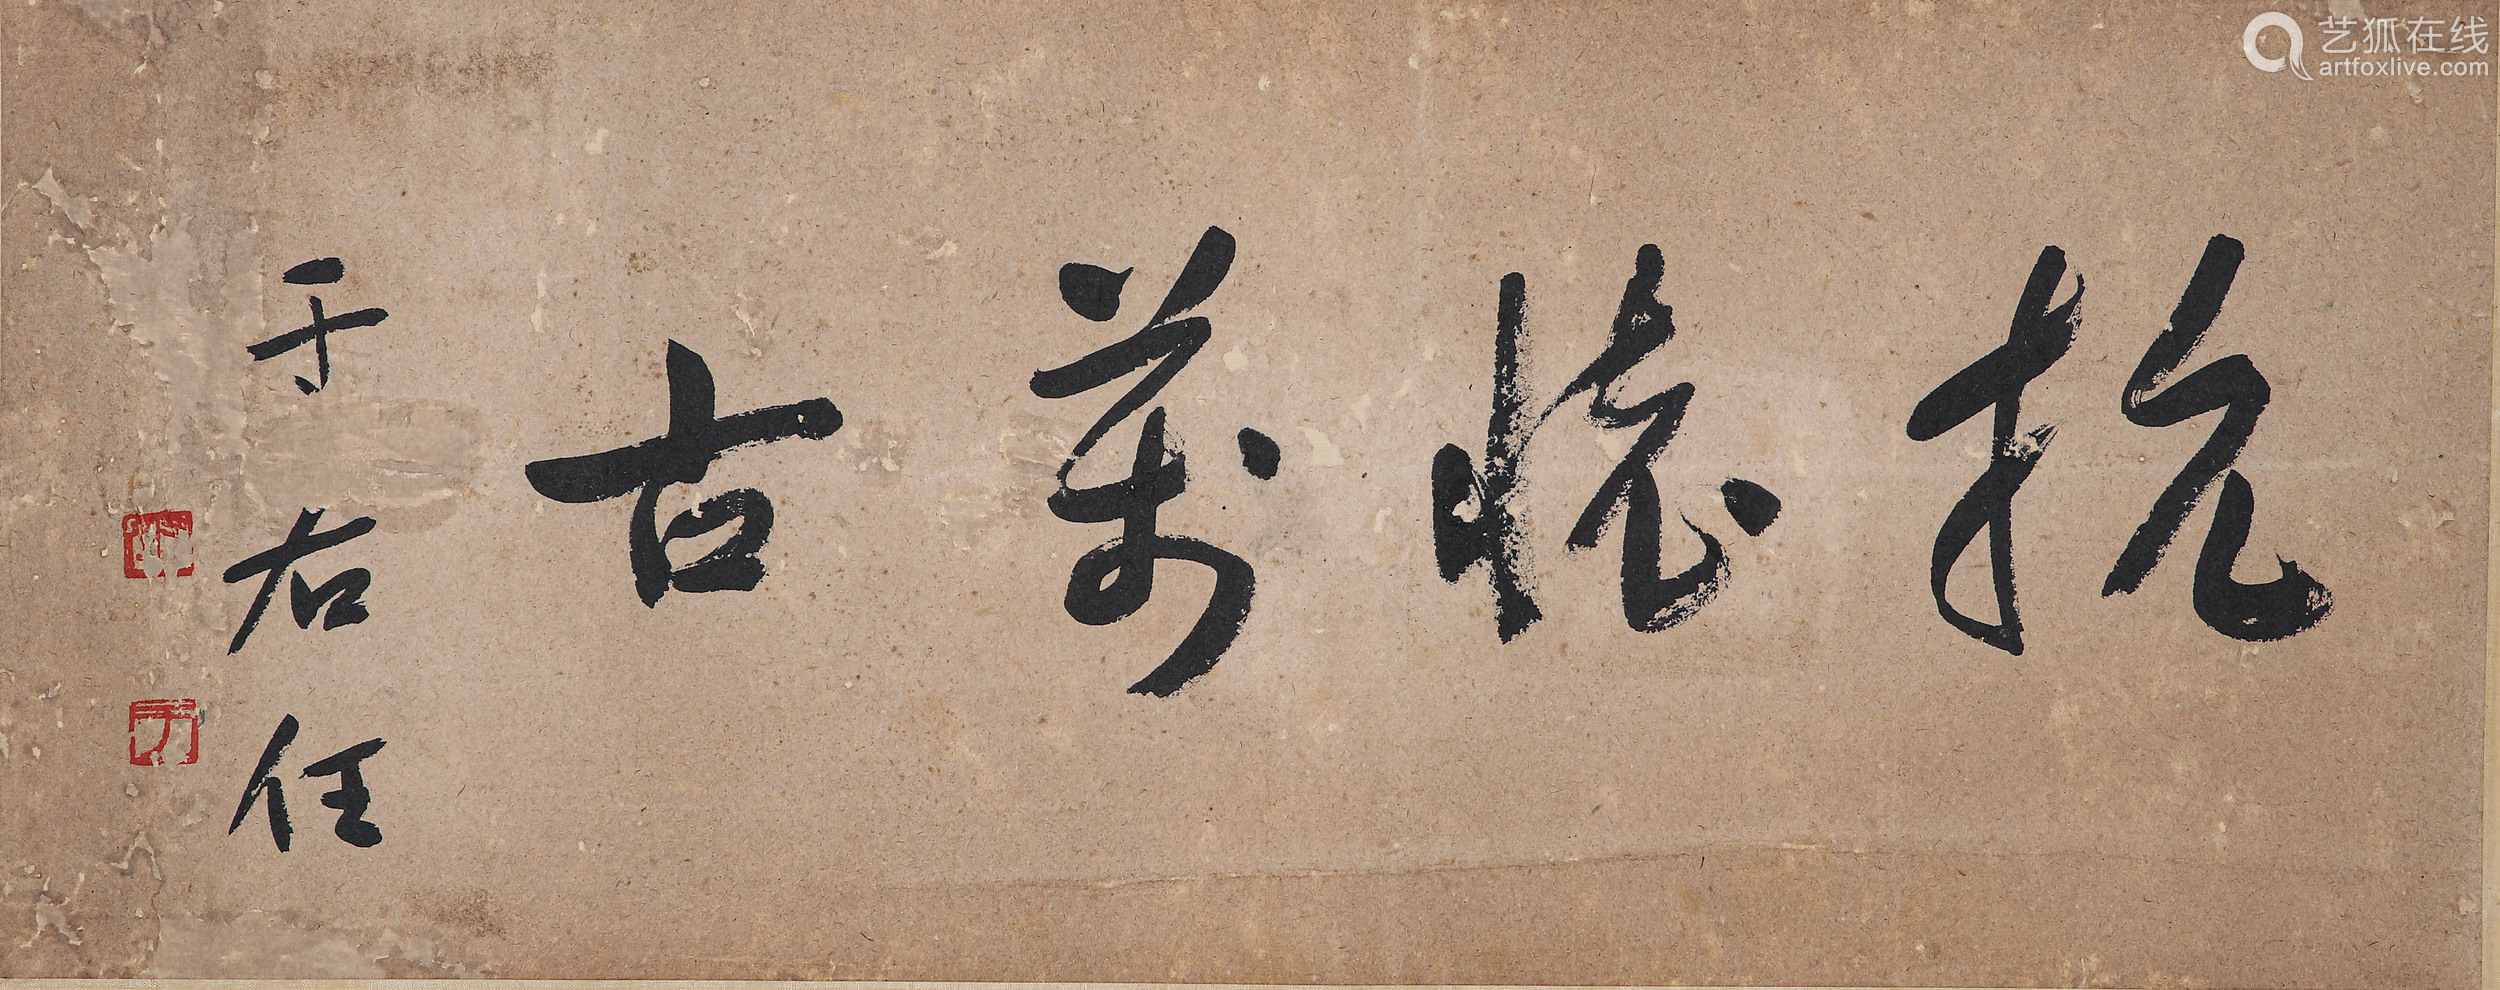 抗懷萬古
于右任
艺狐在线
artfoxlive.com